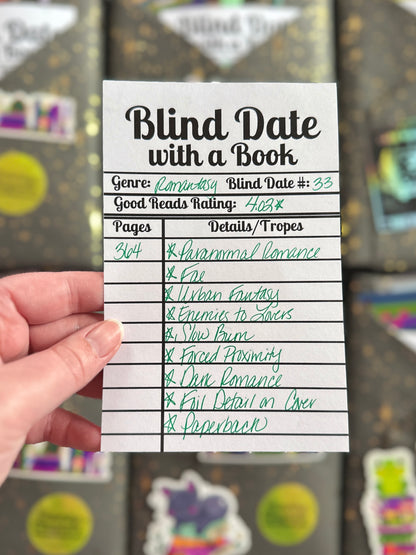 Blind Date
with a Book
Genre: Romantasy Blind Date #: 33
Good Reads Rating: 4.02*
Pages Details/Tropes
364 * Paranormal Romance
* Fae
* Urban Fantasy
* Enemies to Lovers
* Slow Burn
* Forced Proximity
* Dark Romance
* Foil Detail on Cover
* Paperback
Blind Date
with a Book